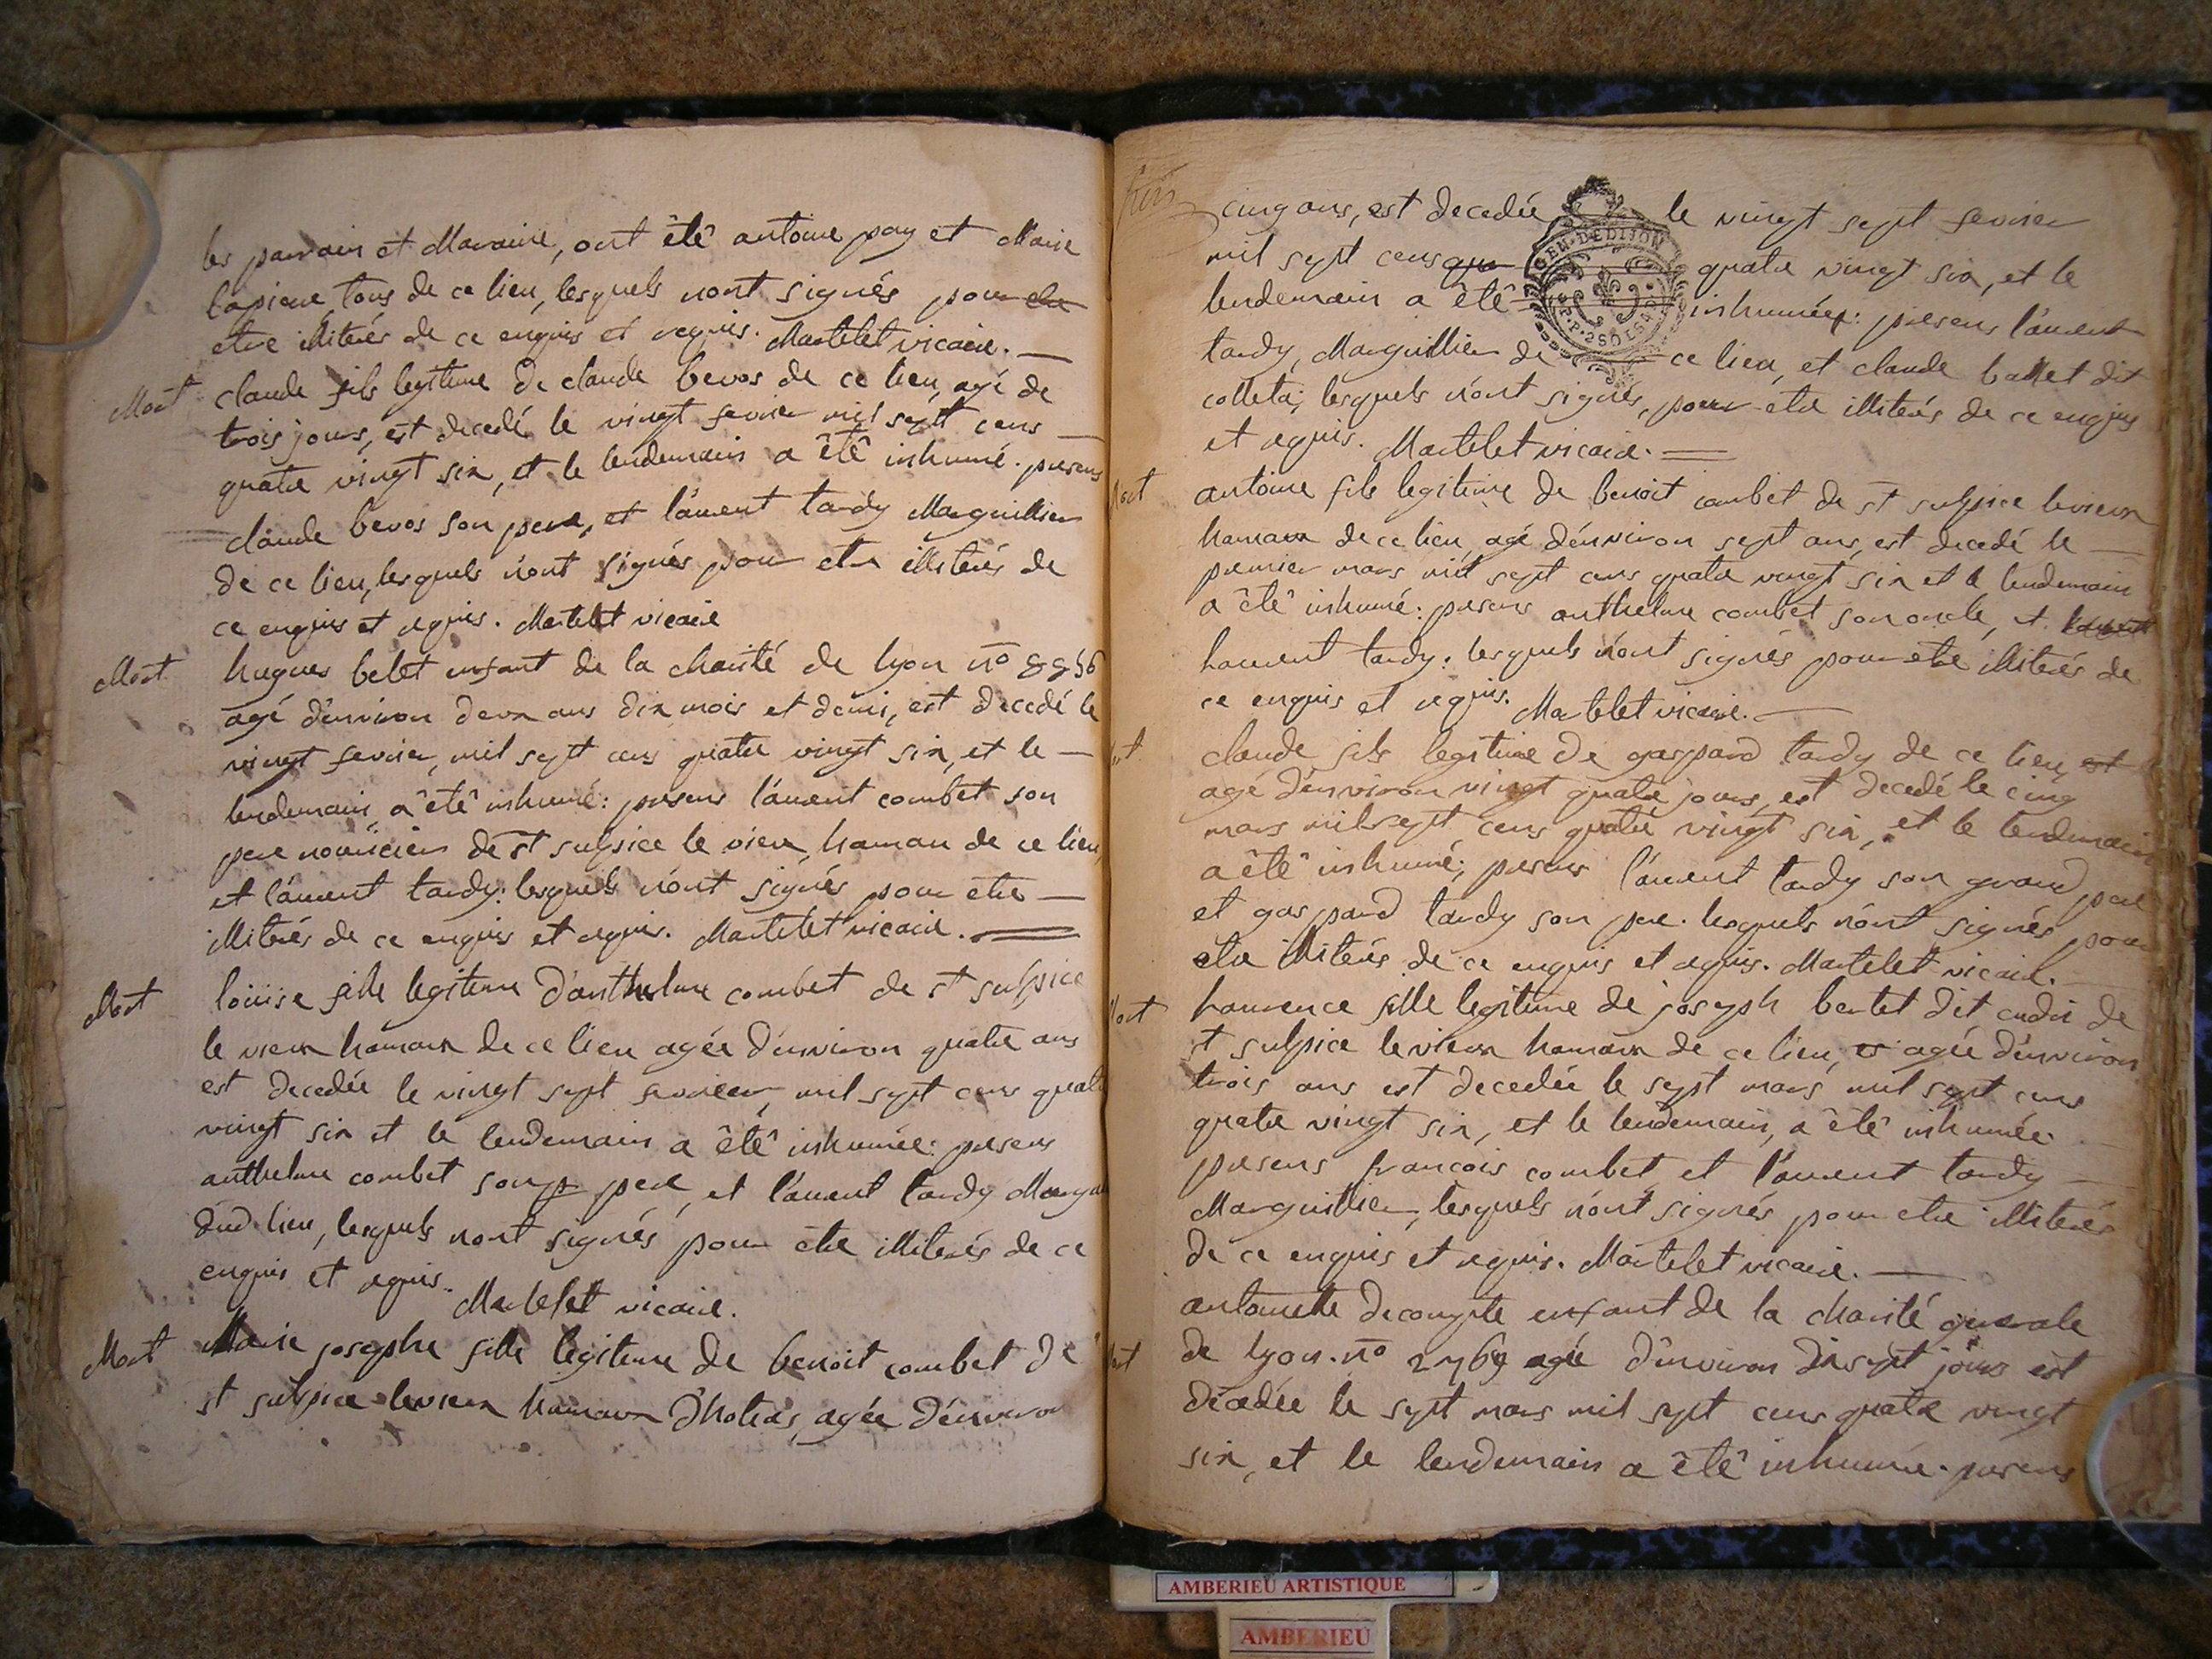 les parrain et Maraine, ont êtê antoine pay et Marie
lapierre, tous de ce lieu, lesquels nont signés pour
etre illiterés de ce enquis et requis. Martelet vicaire.
Mort claude fils legitime de claude bevos de ce lieu, agé de
trois jours, est decedé le vingt fevrier mil sept cens
quatre vingt six, et le lendemain a êtê inhumé. presens
claude bevos son pere, et l'aurent tardy Marguillier
de ce lieu, lesquels n'ont signés pour etre illiterés de
ce enquis et requis. Martelet vicaire
Mort hugues belet enfant de la charité de lyon no
agé d'environ deux ans dix mois et demi, est decedé le
vingt fevrier, mil sept cens quatre vingt six, et le
lendemain, a êtê inhumé: presens l'aurent combet son
pere nouricier de st sulpice le vieux, hamau de ce lieu,
et l'aurent tardy: lesquels n'ont signés pour etre
illiterés de ce enquis et requis. Martelet vicaire.
Mort loüise fille legitime d'anthelme combet de st sulpice
le vieux hamaux de ce lieu agée d'environ quatre ans
est decedée le vingt sept fevrier, mil sept cens quatre
vingt six et le lendemain a êtê inhumée: presens
anthelme combet son pere, et l'aurent tardy
dud lieu, lesquels nont signés pour être illiterés de ce
enquis et requis. Martelet vicaire.
Mort Marie josephe fille legitime de benoit combet de
st sulpice levieux hamaux agée d'environ
cinq ans, est decedée le vingt sept fevrier
mil sept cens quatre vingt six, et le
lendemain a êtê inhumée: presens l'aurent
tardy, Marguillier de ce lieu, et claude ballet dit
colleta; lesquels n'ont signés, pour etre illiterés de ce enquis
et requis. Martelet vicaire.
GEN. DE DIJON
P.P. 2 SOLS 4 D
Mort antoine fils legitime de benoit combet de st sulpice levieux
hamaux de ce lieu, agé d'environ sept ans, est decedé le
premier mars mil sept cens quatre vingt six et le lendemain
a êtê inhumé: presens anthelme combet son oncle, et
laurent tardy: lesquels n'ont signés pour etre illiterés de
ce enquis et requis. Martelet vicaire.
claude fils legitime de gaspard tardy de ce lieu
agé d'environ vingt quatre jours, est decedé le cinq
mars mil sept cens quatre vingt six, et le lendemain
a êtê inhumé; presens l'aurent tardy son grand pere
et gaspard tardy son pere. lesquels n'ont signés pour
etre illiterés de ce enquis et requis. Martelet vicaire.
Mort laurence fille legitime de joseph bertet dit de
st sulpice levieux hamaux de ce lieu, agée d'environ
trois ans est decedée le sept mars mil sept cens
quatre vingt six, et le lendemain, a êtê inhumée
presens francois combet et l'aurent tardy
Marguillier, lesquels n'ont signés pour etre illiterés
de ce enquis et requis. Martelet vicaire.
antoinette decompte enfant de la charité generale
de lyon. no 2769 agée d'environ dixsept jours est
décedée le sept mars mil sept cens quatre vingt
six, et le lendemain a êtê inhumée. presens
AMBERIEU ARTISTIQUE
AMBERIEU